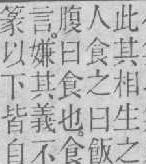 此其相生之
人食之曰飯
腹曰食也食
言嫌其義不
篆以下皆自